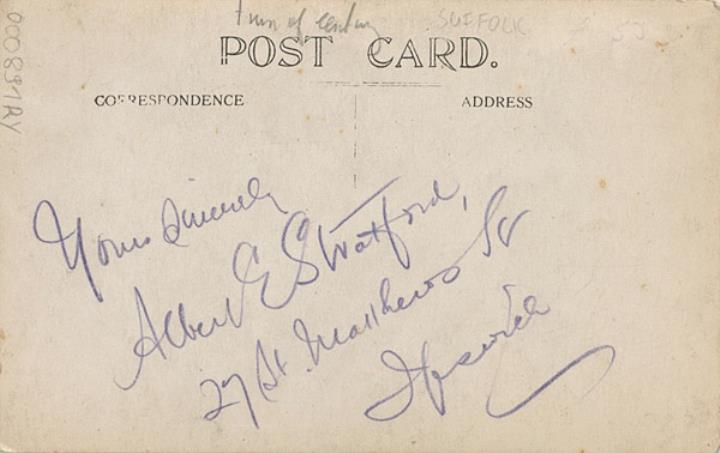 turn of century SUFFOLK
POST CARD.
CORRESPONDENCE ADDRESS
Yours Sincerely
Albert E Stratford,
27 St. Matthews St
Ipswich
000897RY